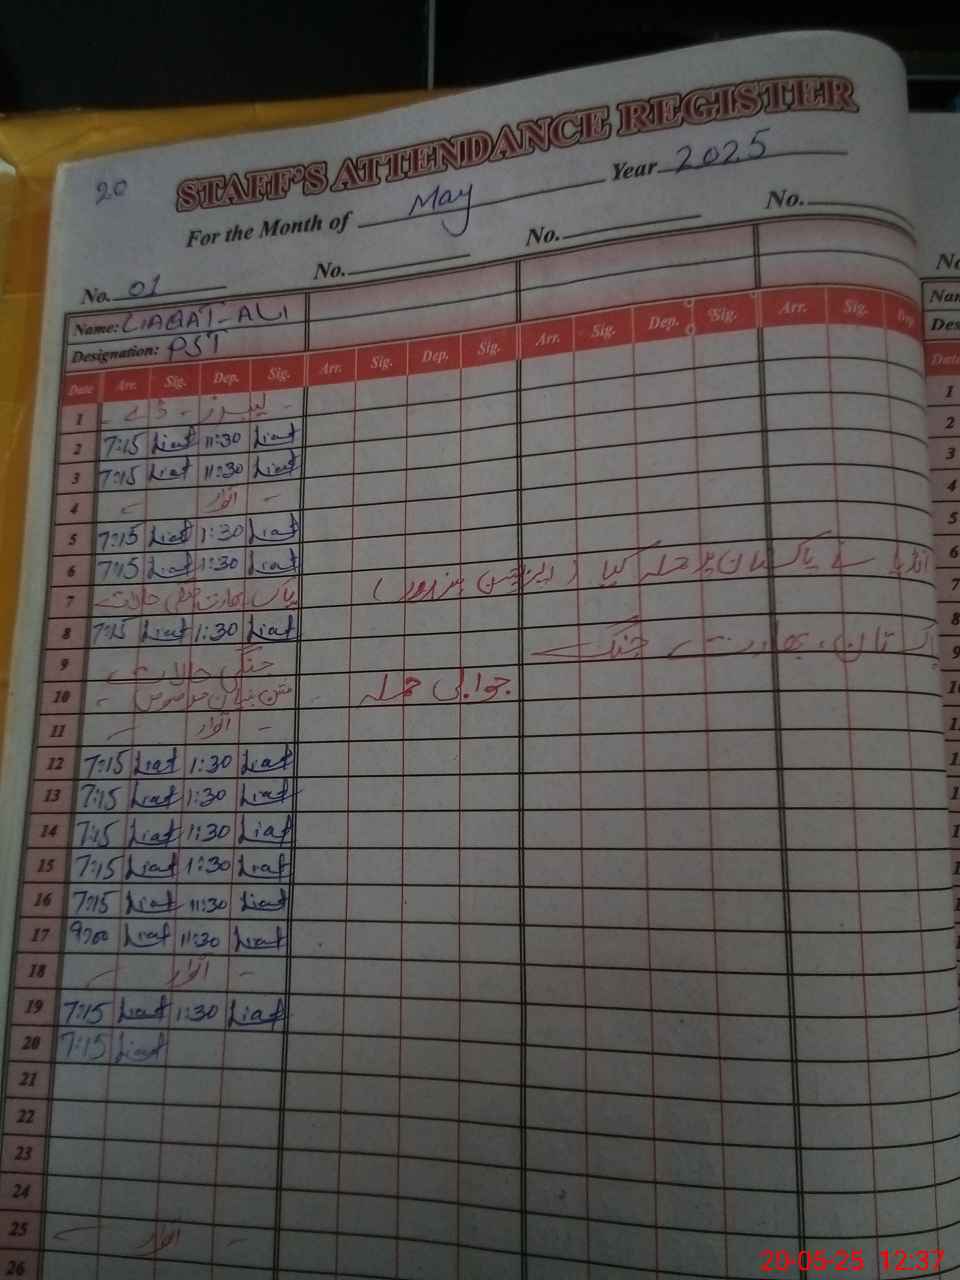 20
STAFF'S ATTENDANCE REGISTER
For the Month of May Year 2025
No. 01 No. No. No.
Name: LIAQAT-ALI
Designation: PST
Date Arr. Sig. Dep. Sig. Arr. Sig. Dep. Sig. Arr. Sig. Dep. Sig. Arr. Sig. Dep.
1 لیبرز ڈے
2 7:15 Liat 11:30 Liat
3 7:15 Liat 11:30 Liat
4 اتوار
5 7:15 Liat 1:30 Liat
6 7:15 Liat 1:30 Liat
7 پاک بھارت جنگی حالات انڈیا نے پاکستان پر حملہ کیا (آپریشن سندور)
8 7:15 Liat 1:30 Liat
9 جنگی حالات پاکستان، بھارت جنگ
10 جوابی حملہ
11 اتوار
12 7:15 Liat 1:30 Liat
13 7:15 Liat 1:30 Liat
14 7:15 Liat 1:30 Liat
15 7:15 Liat 1:30 Liat
16 7:15 Liat 11:30 Liat
17 9:00 Liat 11:30 Liat
18 اتوار
19 7:15 Liat 1:30 Liat
20 7:15 Liat
21
22
23
24
25 اتوار
26
No
Nam
Des
Date
1
2
3
4
5
6
7
8
9
20-05-25 12:37